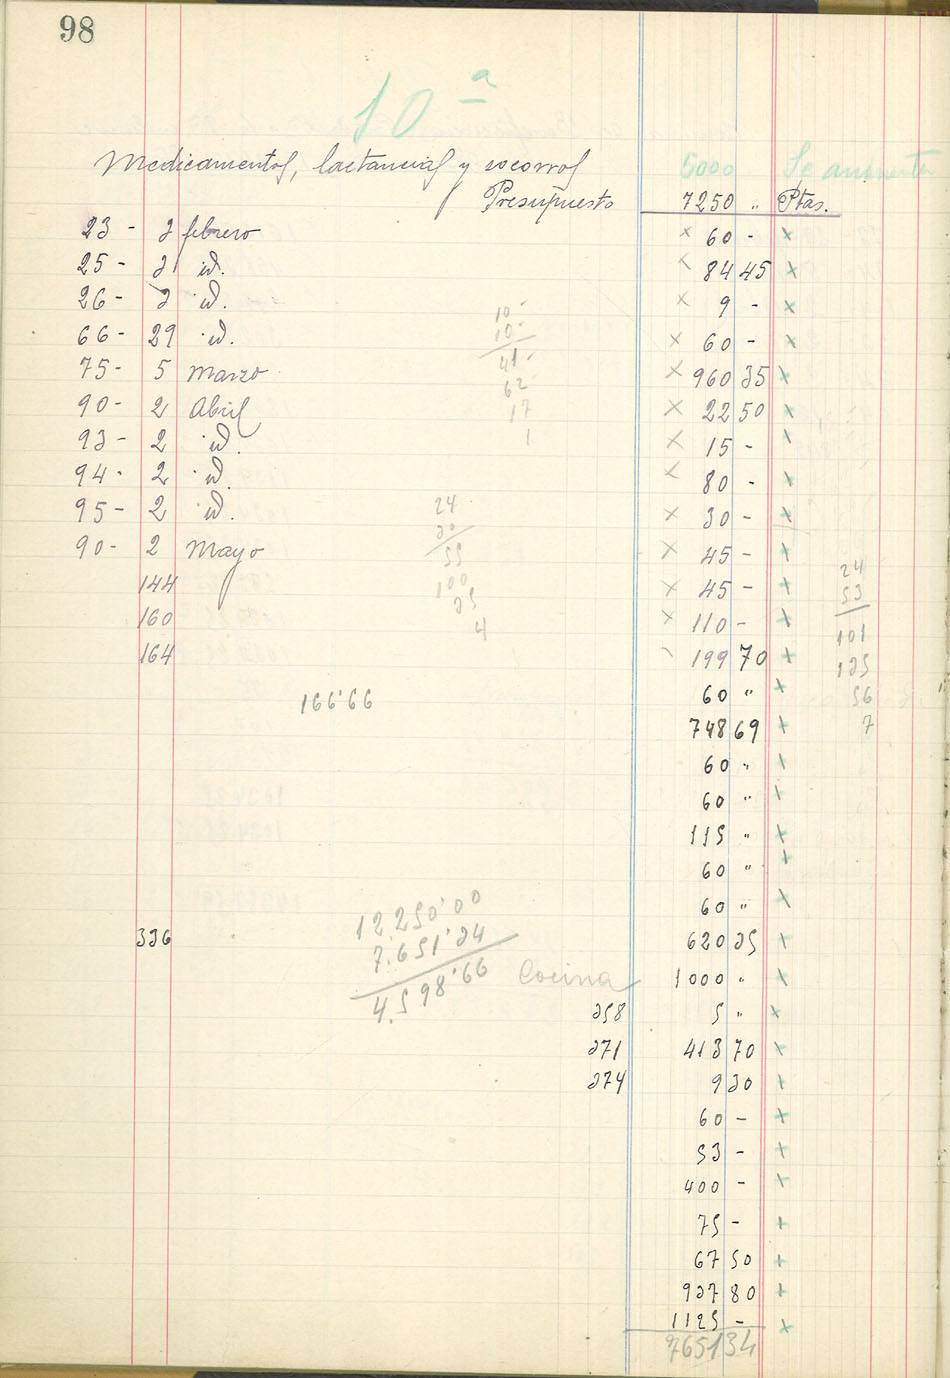 98
10ª
Medicamentos, lactancias y socorros 5000 Se aumenta
Presupuesto 7250 " Ptas.
23 - 2 febrero × 60 - ×
25 - 2 id. × 84 45 ×
26 - 2 id. × 9 - ×
66 - 29 id. × 60 - ×
75 - 5 Marzo × 960 35 ×
90 - 2 Abril × 22 50 ×
93 - 2 id. × 15 - ×
94 - 2 id. × 80 - ×
95 - 2 id. × 30 - ×
90 - 2 Mayo × 45 - ×
144 × 45 - ×
160 × 110 - ×
164 199 70 ×
60 " ×
166'66
748 69 ×
60 " ×
60 " ×
115 " ×
60 " ×
60 " ×
336 620 25 ×
1000 " ×
258 5 " ×
271 413 70 ×
274 9 20 ×
60 - ×
53 - ×
400 - ×
75 - ×
67 50 ×
927 80 ×
1125 - ×
7651 34
10-
10-
41-
62-
17
1
24
20
55
100
25
4
24
53
101
125
56
7
12250'00
7.651'34
4.598'66 Cocina